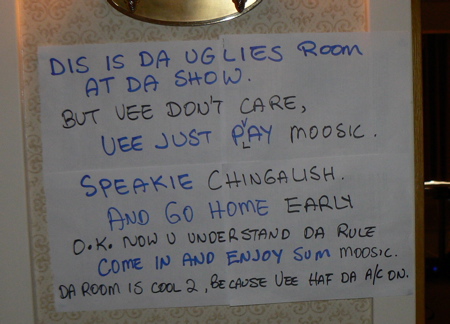 DIS IS DA UGLIES ROOM
AT DA SHOW.
BUT VEE DON'T CARE,
VEE JUST PLAY MOOSIC.
SPEAKIE CHINGALISH.
AND GO HOME EARLY
O.K. NOW U UNDERSTAND DA RULE
COME IN AND ENJOY SUM MOOSIC.
DA ROOM IS COOL 2, BECAUSE VEE HAF DA A/C ON.